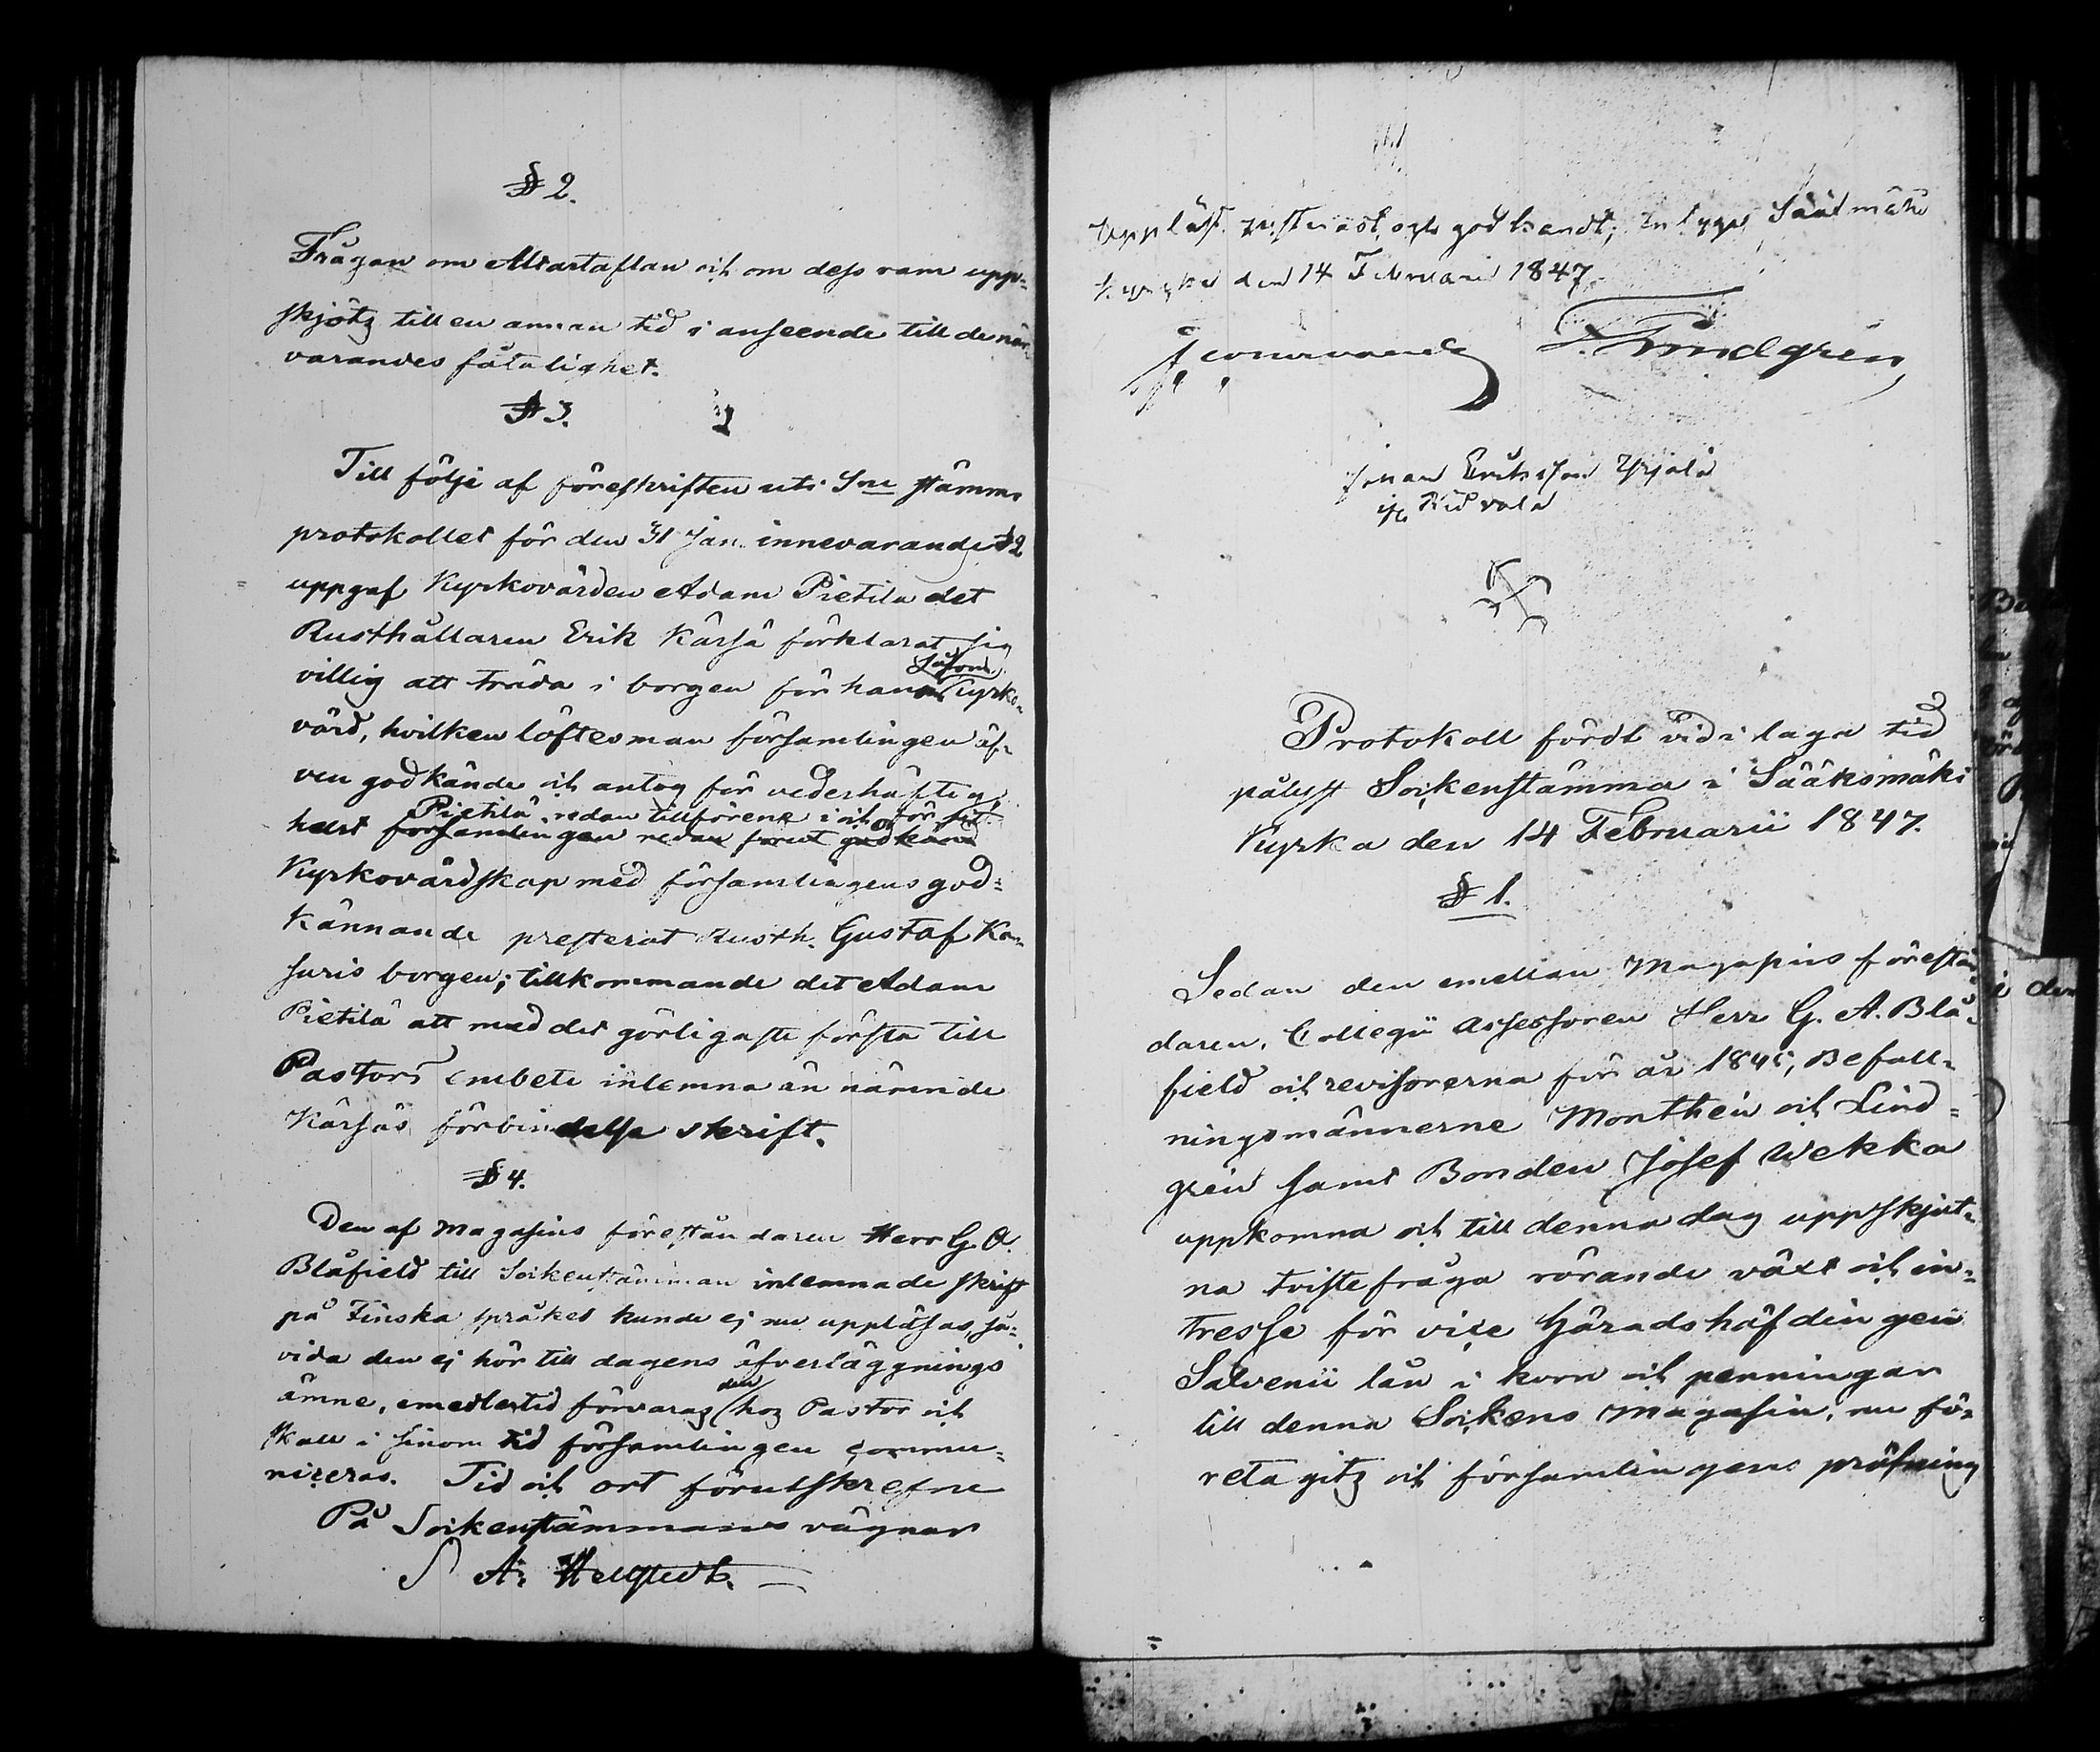 § 2.
Frågan om Altartaflan och om dess ram upp=
skjötz till en annan tid i anseende till de när=
varandes fåtalighet.
§ 3.
Till följe af föreskriften uti Sne stämmo
protokollet för den 31 Jan. innevarande § 2
uppgaf Kyrkovärden Adam Pietilä det
Rusthållaren Erik Kärsä förklarat sig
villig att träda i borgen för hanom såsom Kyrko=
värd, hvilken löftesman församlingen äf=
ven godkände och antog för vederhäftig,
Pietilä redan tillförene i och för sit
helst församlingen redan förut godkänd
Kyrkovärdskap med församlingens god=
kännande presterat Rusth. Gustaf Kon=
suris borgen; tillkommande det Adam
Pietilä att med det görligaste första till
Pastors embete inlemna än nämnde
Kärsäs förbindelse skrift.
§ 4.
Den af Magasins föreståndaren Herr G. A.
Blåfield till Sockenstämman inlemnade skrift
på Finska språket kunde ej nu uppläsas, så=
vida den ej hör till dagens öfverläggnings
ämne, emedlertid förvaras den hos Pastor och
skall i sinom tid församlingen commu=
niceras. Tid och ort förutskrefne
På Sockenstämmans vägnar
A. Helqvist.
Uppläst, justeradt och godkändt, intygar Sääksmäki
kyrka den 14 Februari 1847.
F. Lindgren
Johan Eriksson Yrjölä
i Ridvala
Protokoll fördt vid i laga tid
pålyst Sockenstämma i Sääksmäki
Kyrka den 14 Februarii 1847.
§ 1.
Sedan den emellan Magasins förestån=
daren, Collegii Assessoren Herr G. A. Blå=
field och revisorerna för år 1845, Befall=
ningsmännerne Monthén och Lind=
grén samt Bonden Josef Wekka
uppkomna och till denna dag uppskjut=
na tvistefråga rörande växt och in=
tresse för vice Häradshöfdingen
Salvenii lån i korn och penningar
till denna Sockens Magasin, nu fö=
retagitz och församlingens pröfning